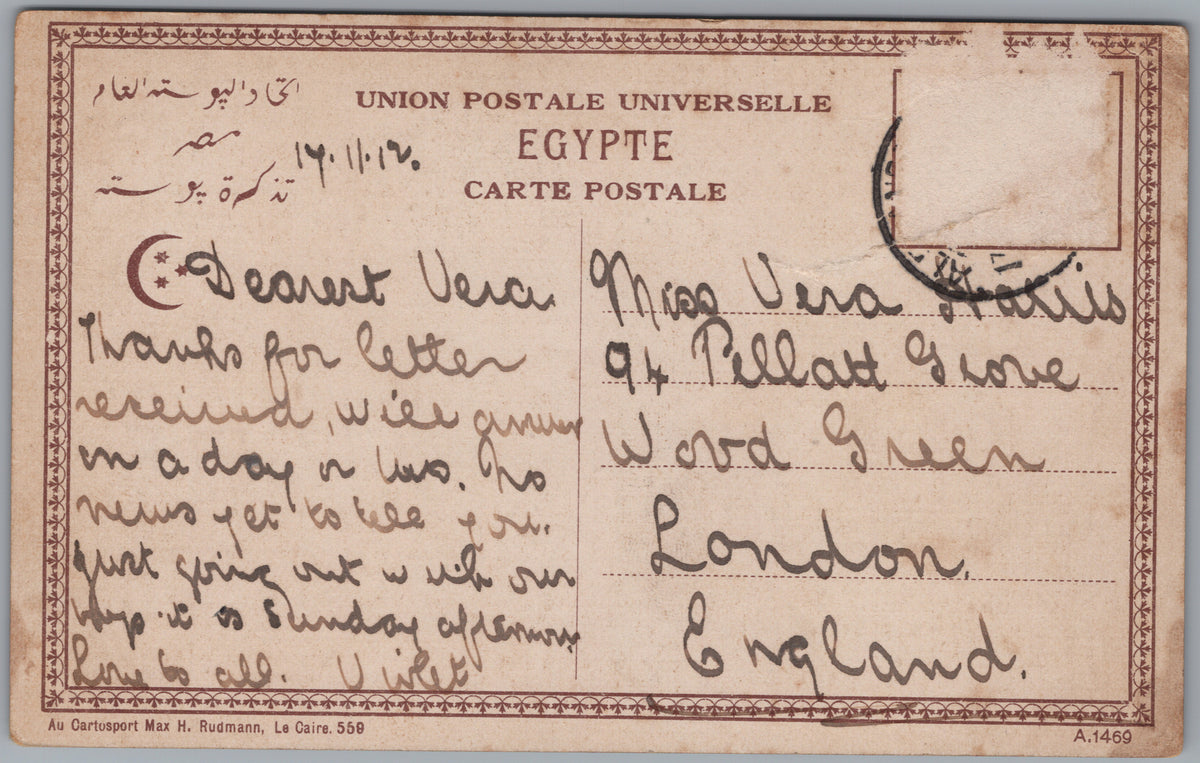 اتحاد البوسته العام
مصر
تذكرة بوسته
UNION POSTALE UNIVERSELLE
EGYPTE
CARTE POSTALE
17.11.12.
Dearest Vera.
Thanks for letter
received, will answer
in a day or two. No
news yet to tell you.
Just going out with our
boys it is Sunday afternoon
Love to all. Violet
Miss Vera Harris
94 Pellatt Grove
Wood Green
London.
England.
Au Cartosport Max H. Rudmann, Le Caire. 559
A.1469